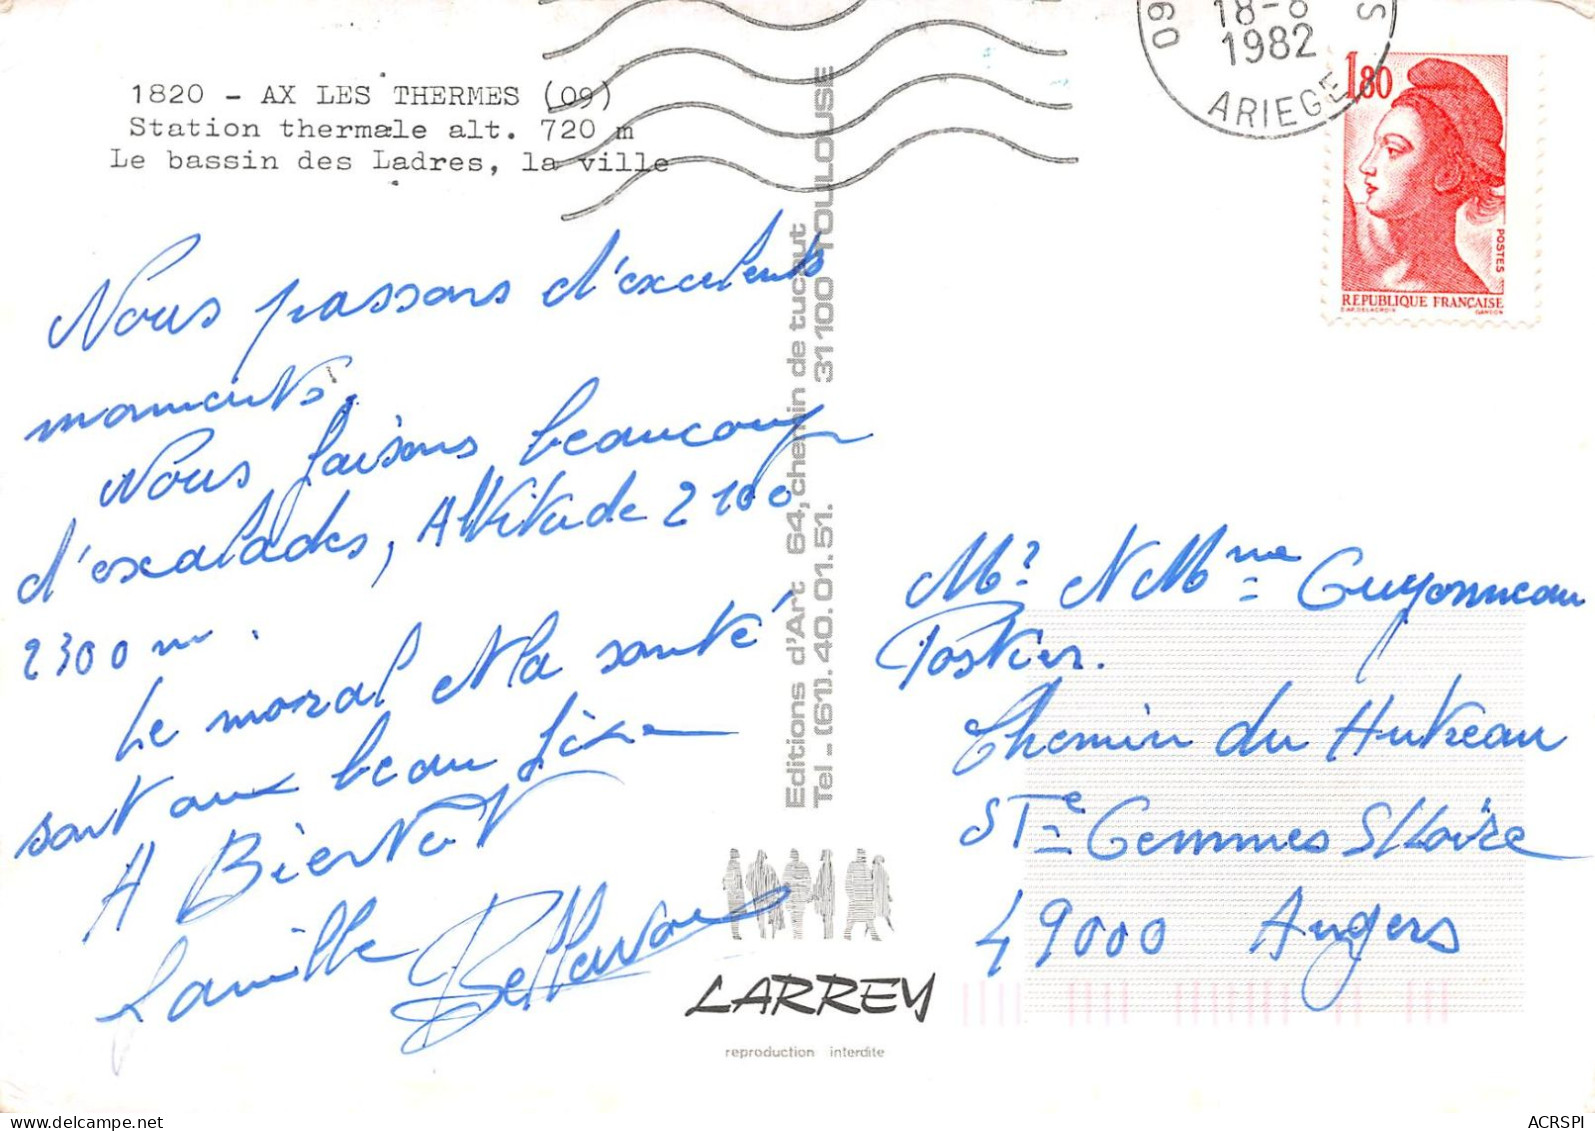 1820 - AX LES THERMES (09)
Station thermale alt. 720 m
Le bassin des Ladres, la ville
Nous passons d'excelents
moments,
Nous faisons beaucoup
d'escalades, Altitude 2100
2300 m.
Le moral et la santé
sont aux beau fixe
A Bientôt
famille
Editions d'Art 64, chemin de tucaut
Tel - (61). 40.01.51. 31100 TOULOUSE
LARREY
reproduction interdite
09
18-8
1982
ARIEGE
S
1,80
POSTES
REPUBLIQUE FRANÇAISE
D'AP. DELACROIX GANDON
Mr et Mme Guyonneau
Postier.
Chemin du Hutreau
Ste Gemmes S/Loire
49000 Angers
ACRSPI